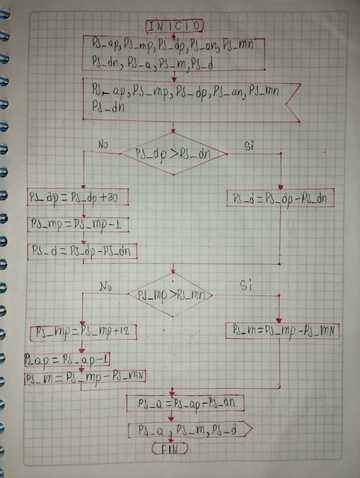 INICIO
PS_ap, PS_mp, PS_dp, PS_an, PS_mn
PS_dn, PS_a, PS_m, PS_d
PS_ap, PS_mp, PS_dp, PS_an, PS_mn
PS_dn
No
PS_dp > PS_dn
Si
PS_dp = PS_dp + 30
PS_d = PS_dp - PS_dn
PS_mp = PS_mp - 1
PS_d = PS_dp - PS_dn
No
PS_mp > PS_mn
Si
PS_mp = PS_mp + 12
PS_m = PS_mp - PS_mN
PS_ap = PS_ap - 1
PS_m = PS_mp - PS_mN
PS_a = PS_ap - PS_an
PS_a, PS_m, PS_d
FIN